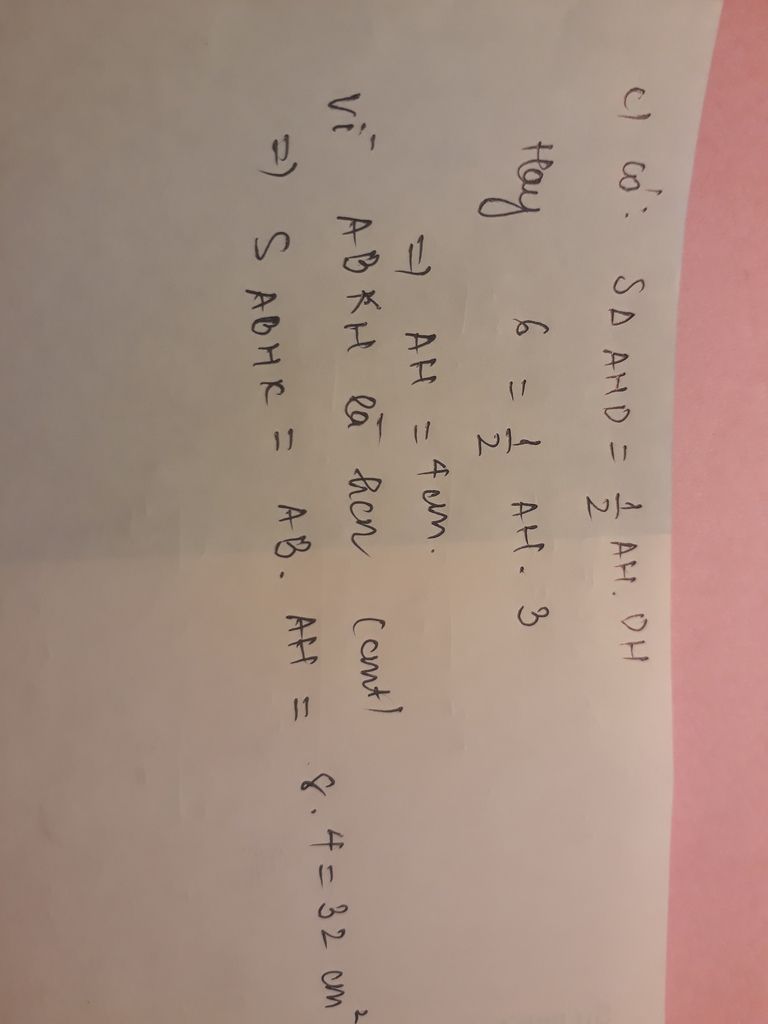 c) có: SΔAHD = 1/2 AH. DH
Hay 6 = 1/2 AH. 3
=) AH = 4cm.
Vì ABKH là hcn (cmt)
=) SABHK = AB. AH = 8.4=32 cm²